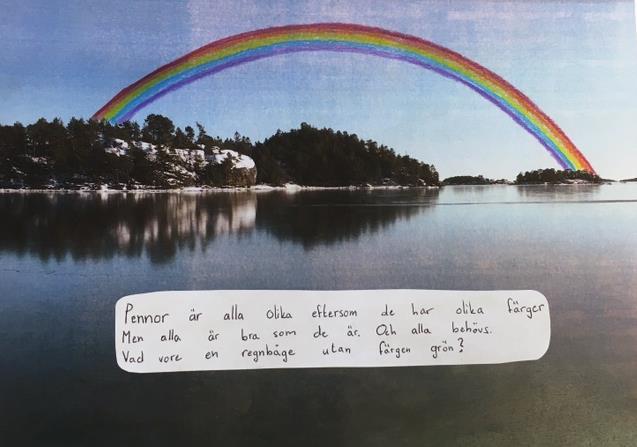 Pennor är alla olika eftersom de har olika färger
Men alla är bra som de är. Och alla behövs.
Vad vore en regnbåge utan färgen grön?